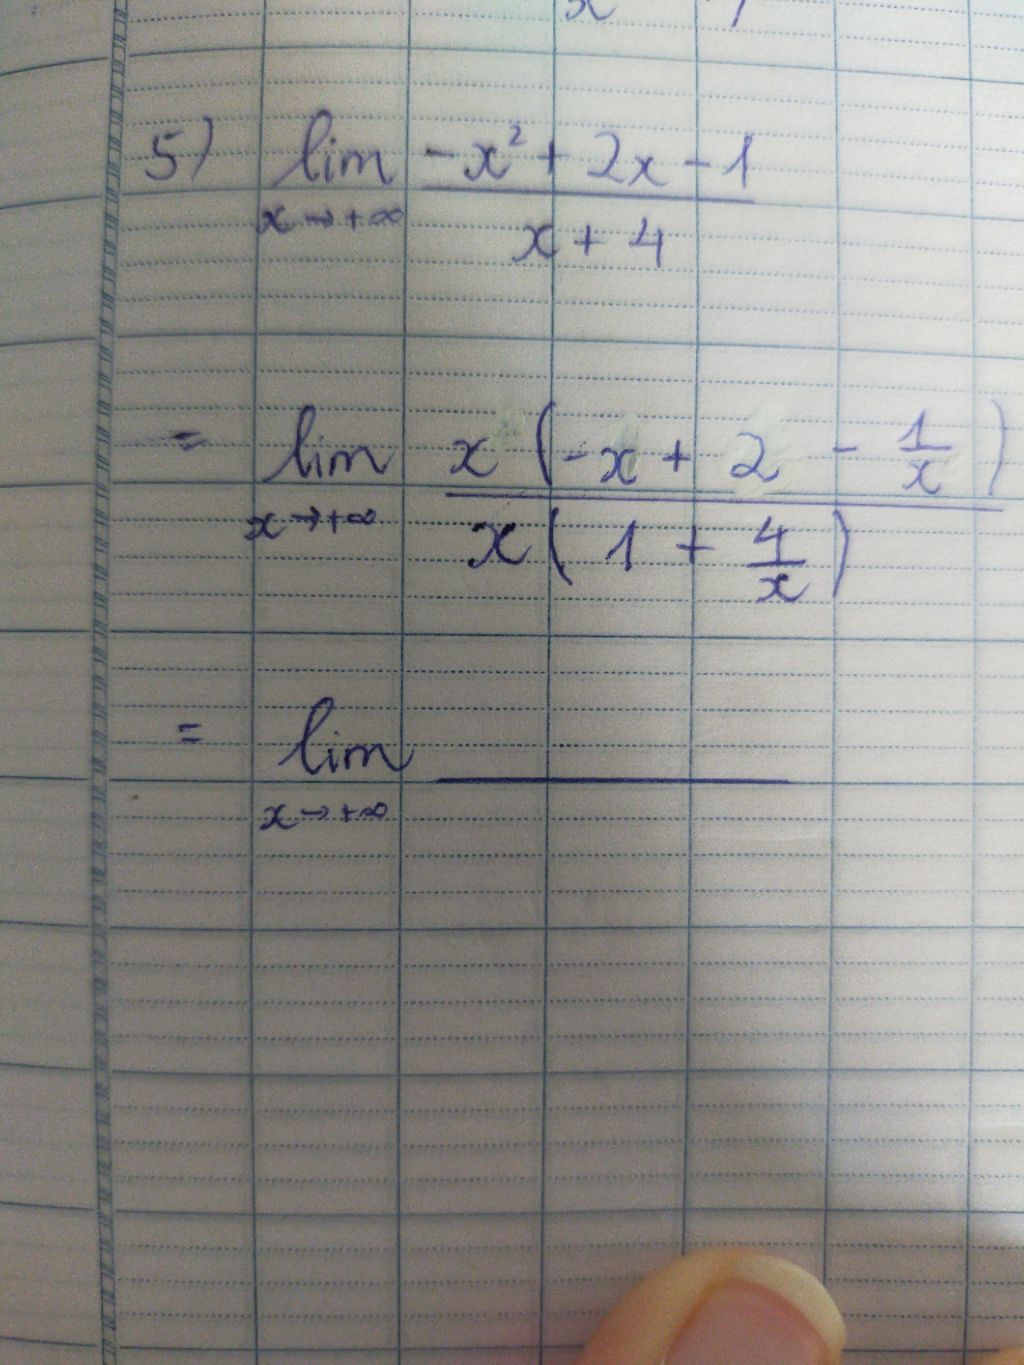 5) lim -x² + 2x - 1
x → +∞ x + 4
= lim x ( -x + 2 - 1/x )
x → +∞ x ( 1 + 4/x )
= lim
x → +∞